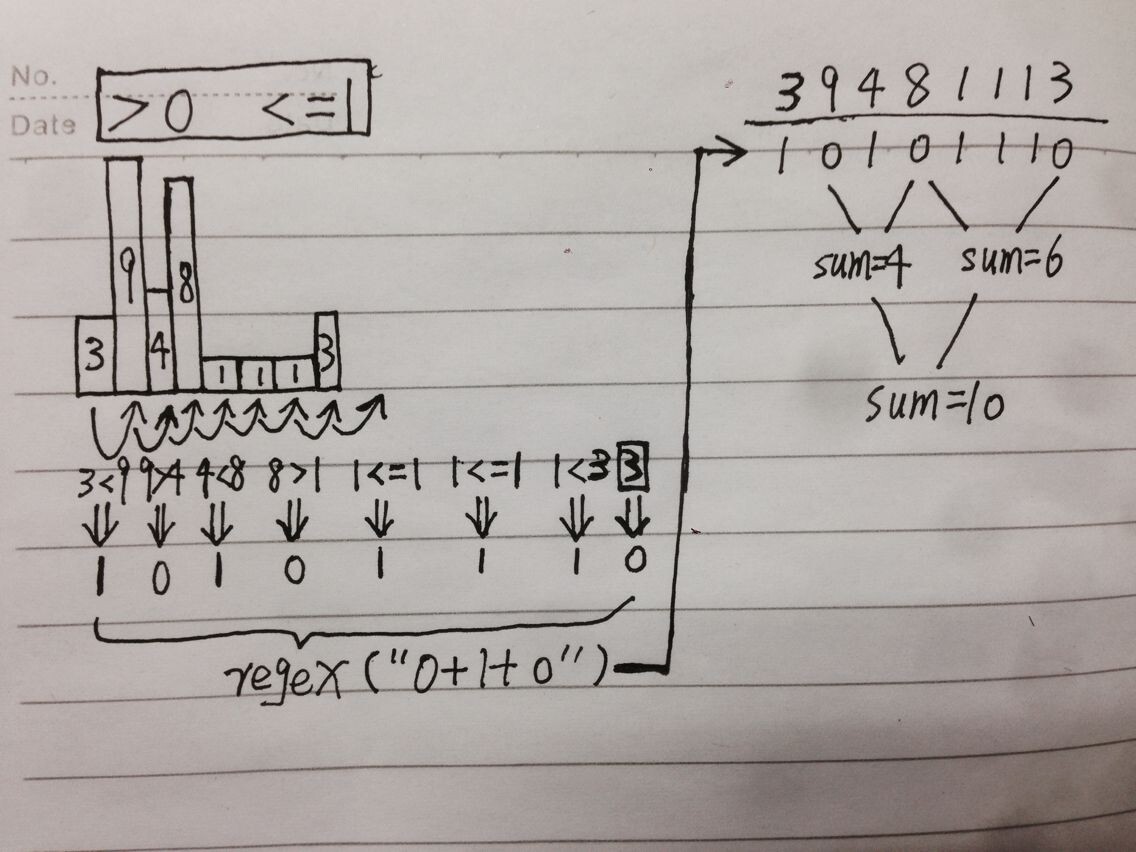 No.
Date
>0 <=1
3 9 4 8 1 1 1 3
3<9 9>4 4<8 8>1 1<=1 1<=1 1<3 3
1 0 1 0 1 1 1 0
regex ("0+1+0")
3 9 4 8 1 1 1 3
1 0 1 0 1 1 1 0
sum=4 sum=6
sum=10